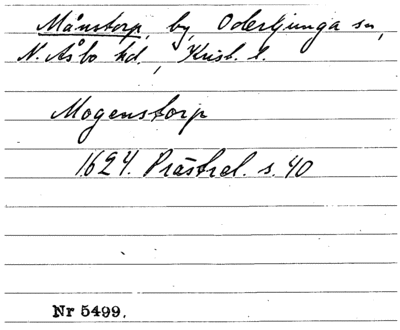 Månstorp, by, Oderljunga sn,
N. Åsbo hd., Krist. l.
Mogenstorp
1624. Prästrel. s. 40
Nr 5499.